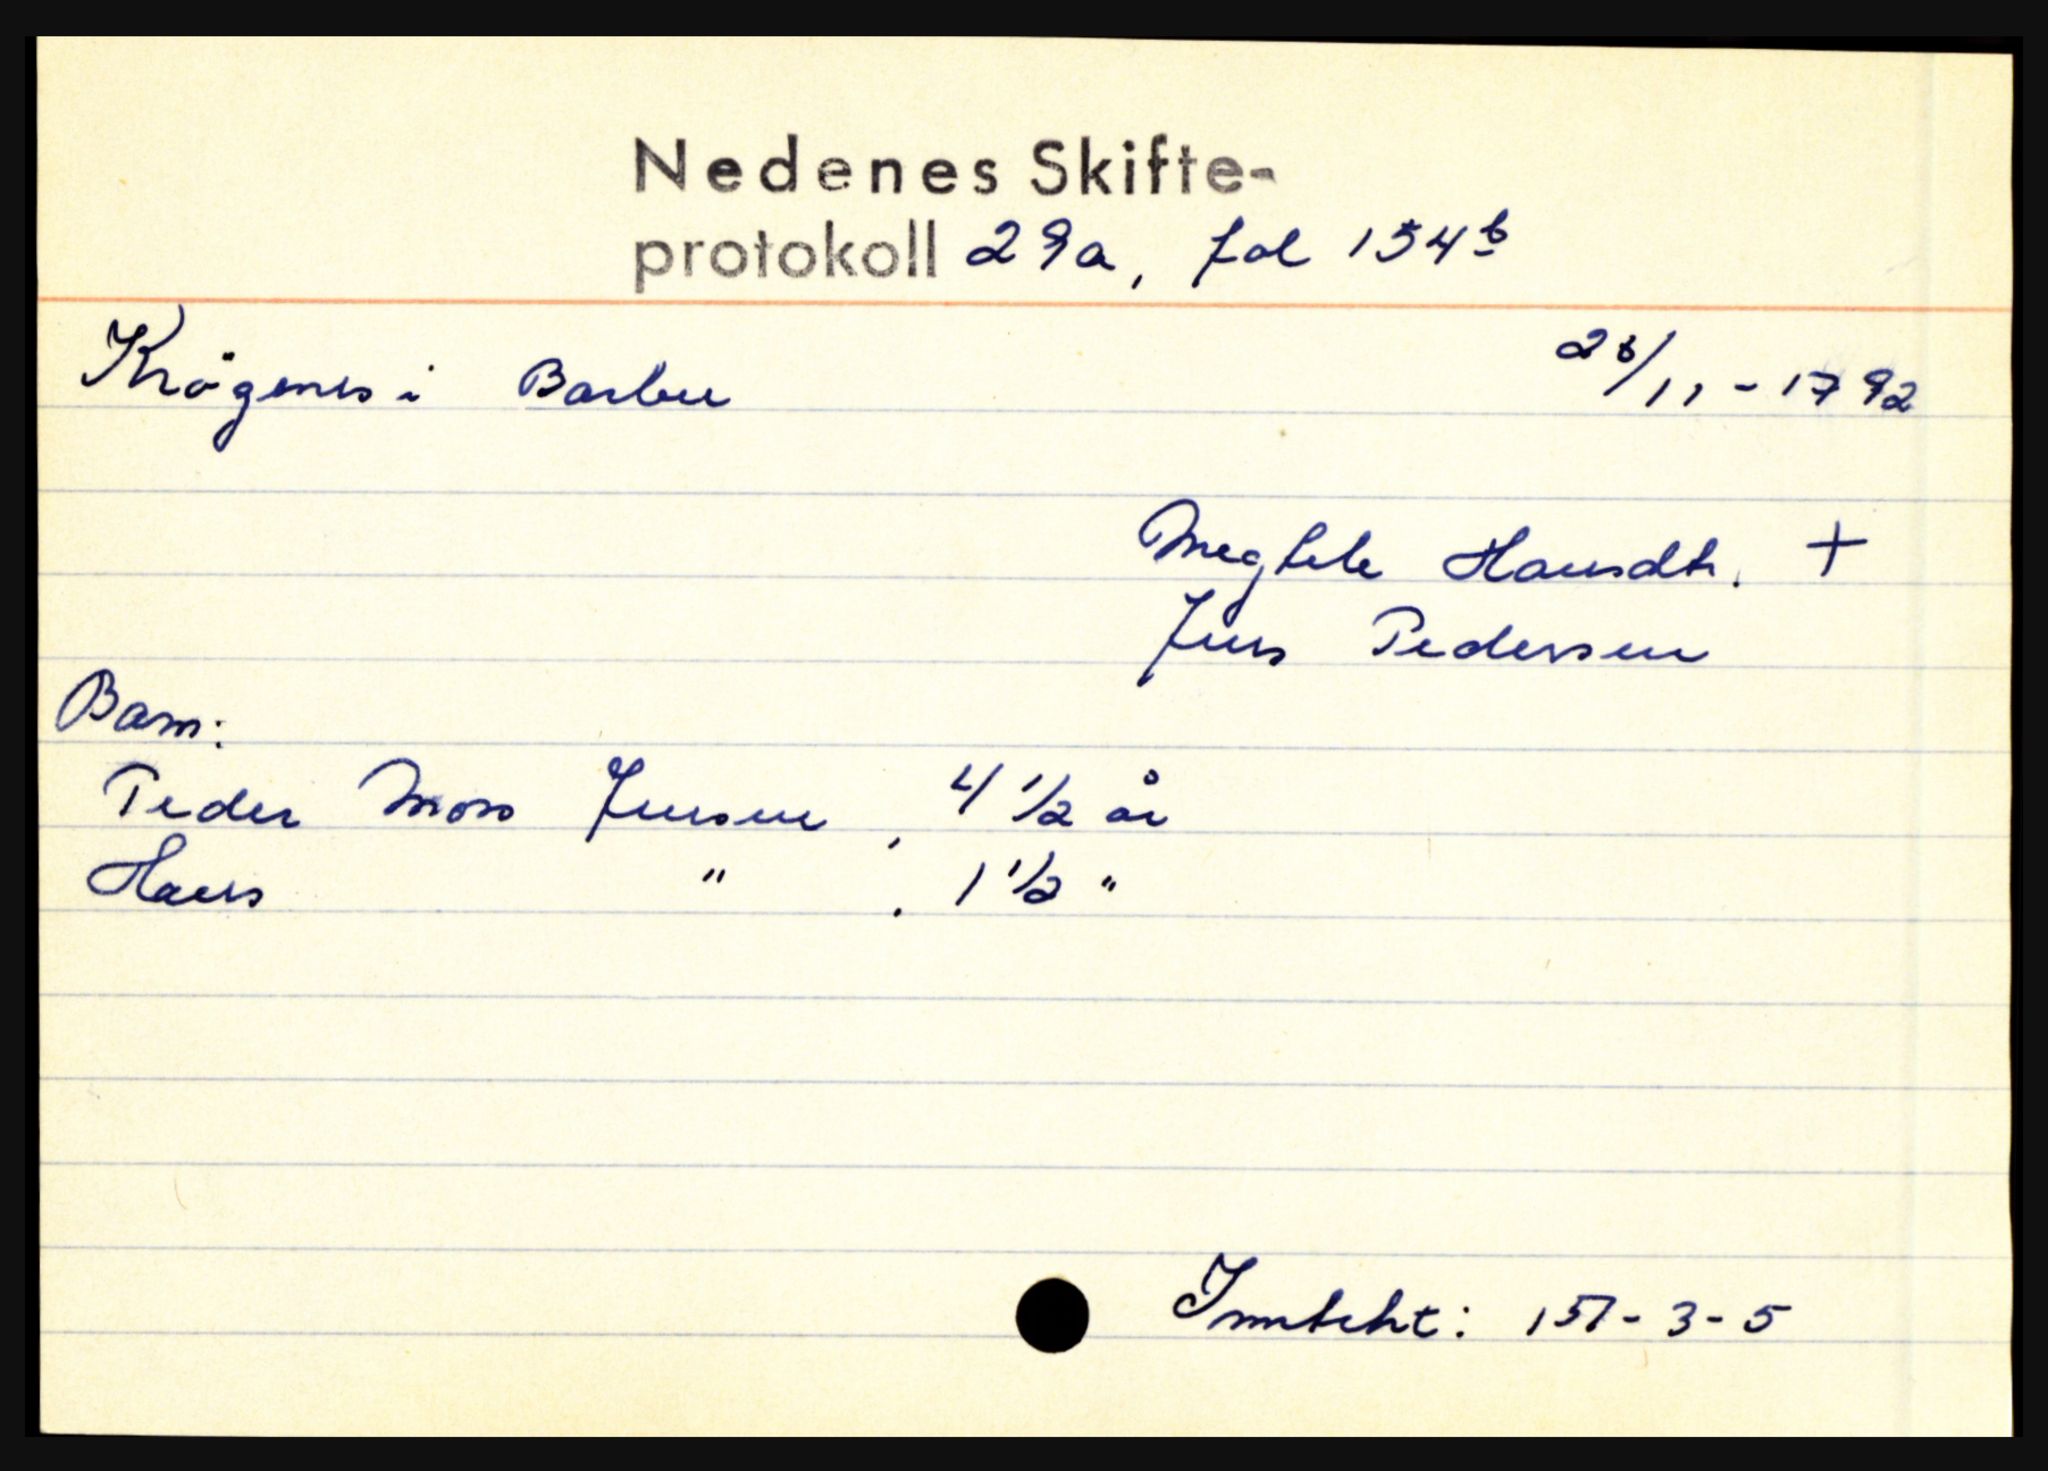 Nedenes Skifte-
protokoll 29a, fol 154b
Krögenes i Barbu
28/11-1792
Megtele Hansdtr. +
Jens Pedersen
Barn:
Peder Moss Jensen, 4 1/2 år
Hans " . 1 1/2 "
Inntekt: 157-3-5